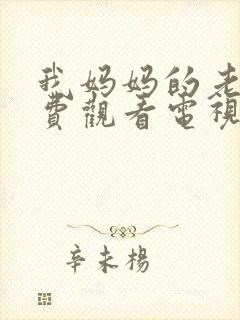 我妈妈的老
費觀看電視
辛未楊